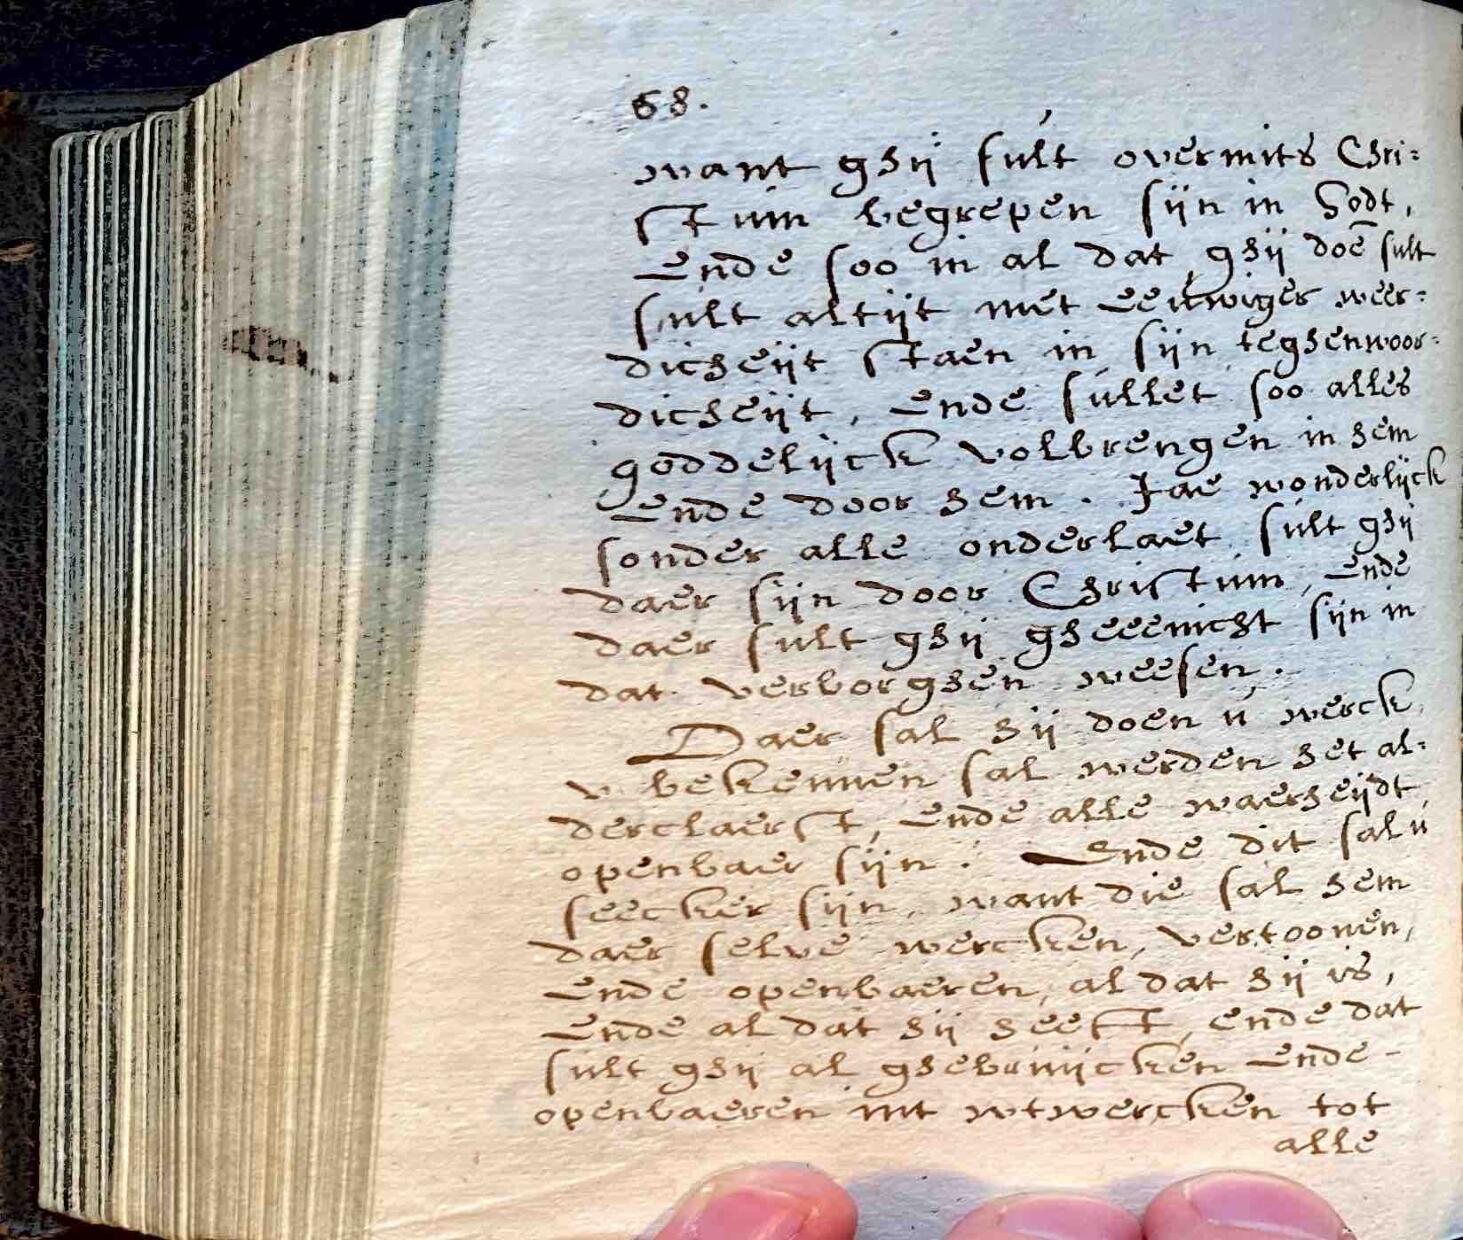 68.
want ghij sult overmits Chri:
stum begrepen sijn in Godt,
Ende soo in al dat ghij doē sult
sult altijt met eeuwiger weer:
dicheijt staen in sijn teghenwoor:
dicheijt, Ende sullet soo alles
goddelijck volbrengen in hem
Ende door hem. Jae wonderlijck
sonder alle onderlaet sult ghij
daer sijn door Christum, Ende
daer sult ghij gheeenicht sijn in
dat verborghen weesen.
Daer sal hij doen u werck,
v bekennen sal werden het al:
derclaerst, Ende alle waerheijdt
openbaer sijn: Ende dit sal u
seecker sijn, want die sal hem
daer selve wercken, vertoonen,
Ende openbaeren, al dat hij is,
Ende al dat hij heeft, ende dat
sult ghij al ghebruijcken Ende -
openbaeren int wtwercken tot
alle